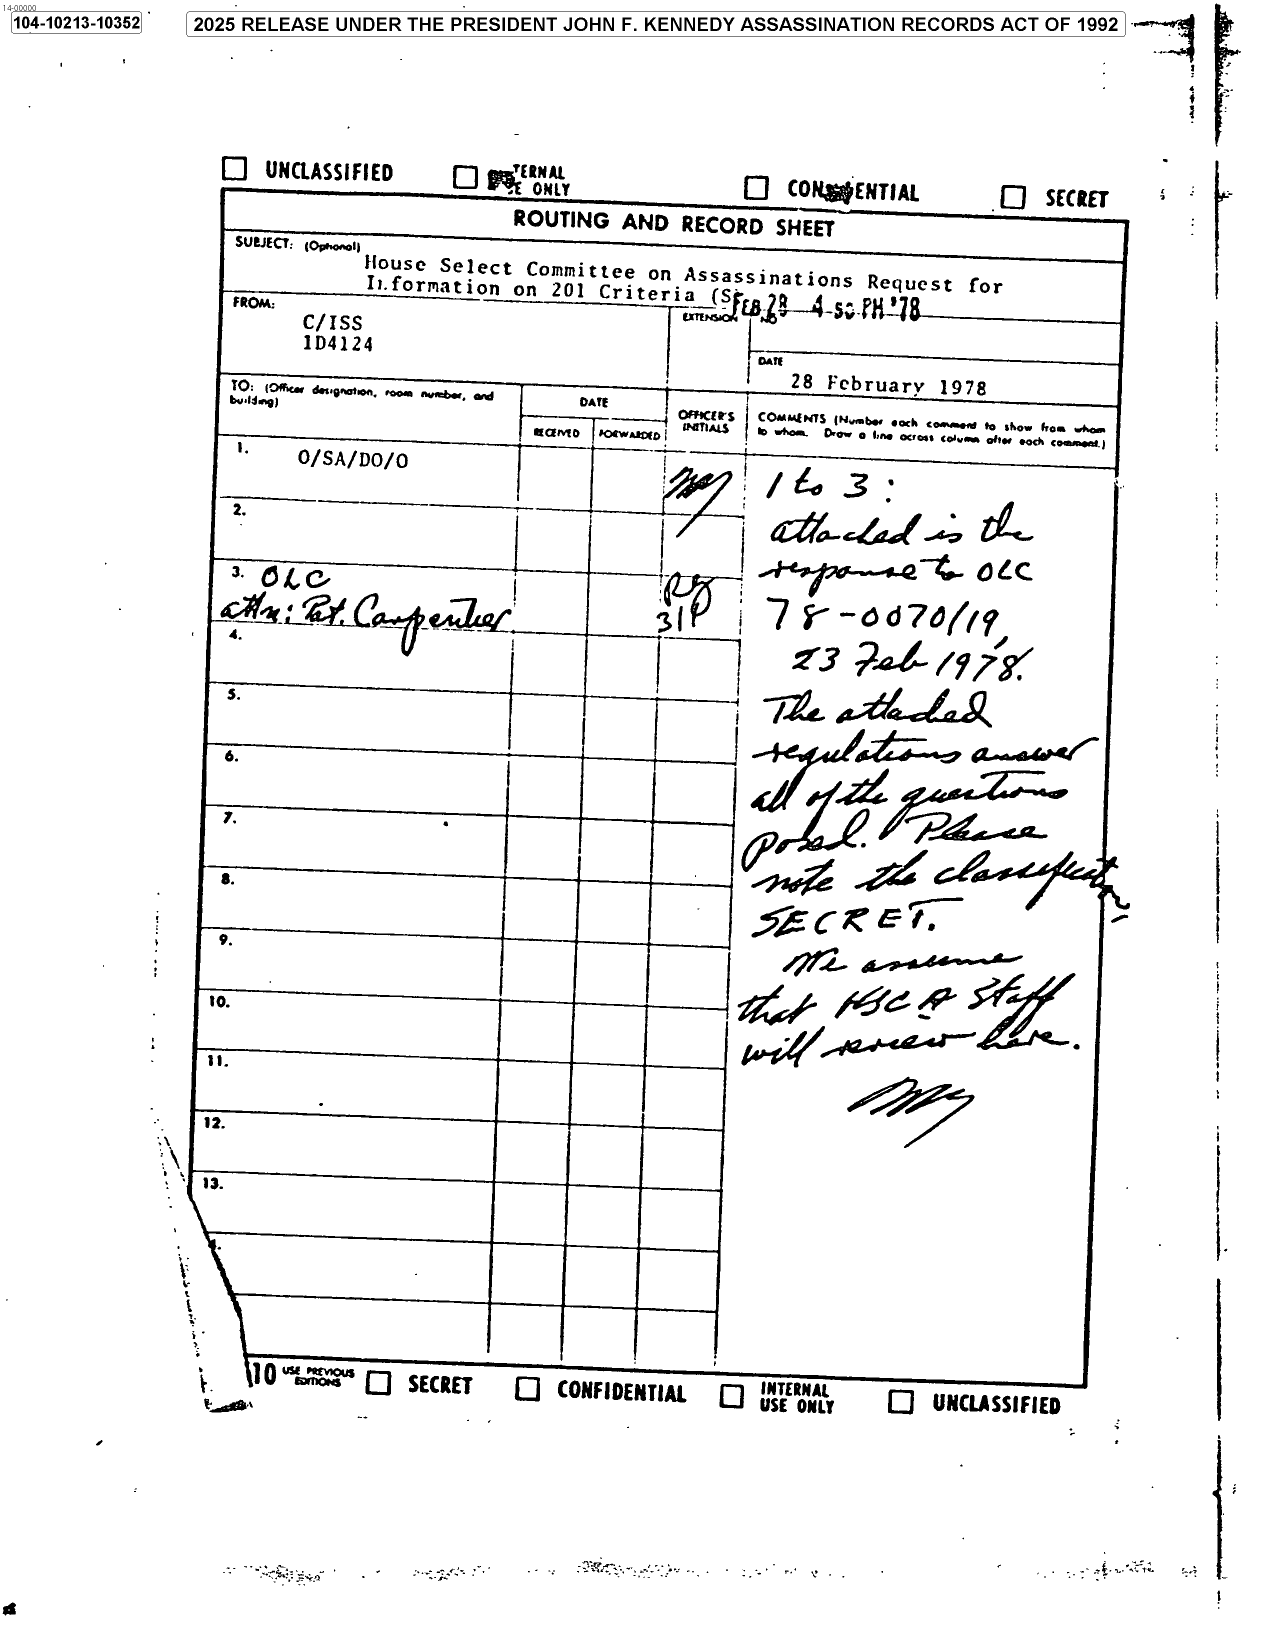 14-00000
104-10213-10352
2025 RELEASE UNDER THE PRESIDENT JOHN F. KENNEDY ASSASSINATION RECORDS ACT OF 1992
UNCLASSIFIED TERNAL E ONLY CON ENTIAL SECRET
ROUTING AND RECORD SHEET
SUBJECT: (Optional)
House Select Committee on Assassinations Request for
Information on 201 Criteria (S
FEB 28 4 50 PM '78
FROM:
C/ISS
1D4124
EXTENSION
NO
DATE
28 February 1978
TO: (Officer designation, room number, and building)
DATE
RECEIVED FORWARDED
OFFICER'S INITIALS
COMMENTS (Number each comment to show from whom
to whom. Draw a line across column after each comment.)
1. O/SA/DO/O
2.
3. OLC
attn: Pat. Carpentier
31P
4.
5.
6.
7.
8.
9.
10.
11.
12.
13.
4.
1 to 3:
attached is the
response to OLC
78-0070/19,
23 Feb 1978.
The attached
regulations answer
all of the questions
posed. Please
note the classification:
SECRET.
We assume
that HSCA Staff
will review here.
10 USE PREVIOUS EDITIONS SECRET CONFIDENTIAL INTERNAL USE ONLY UNCLASSIFIED